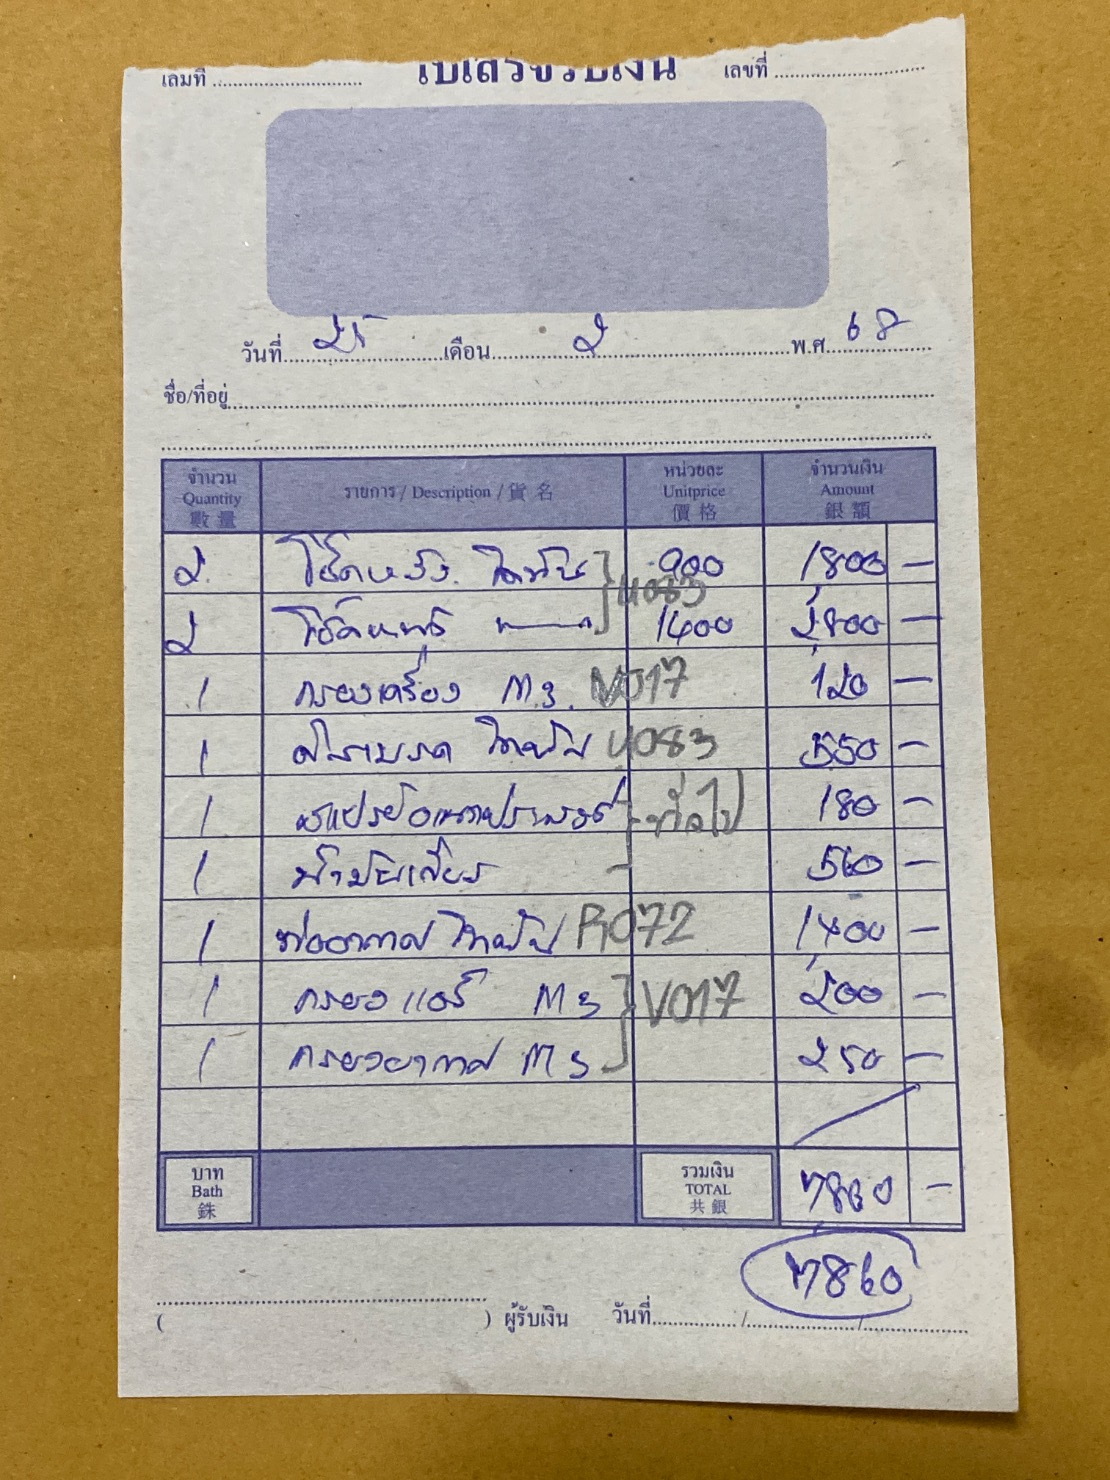 เล่มที่ ใบเสร็จรับเงิน เลขที่
วันที่ 25 เดือน 2 พ.ศ. 68
ชื่อ/ที่อยู่
จำนวน รายการ / Description / 貨名 หน่วยละ จำนวนเงิน
Quantity Unitprice Amount
數量 價格 銀額
2 โช๊คหลัง 900 1800 -
U083
2 โช๊คหน้า 1400 2800 -
1 กรองเครื่อง M3 V017 120 -
1 U083 550 -
1 ทั่วไป 180 -
1 น้ำมันเกียร์ 560 -
1 ท่ออากาศ R072 1400 -
1 กรองแอร์ M3 V017 200 -
1 กรองอากาศ M3 250 -
บาท รวมเงิน 7860 -
Bath TOTAL
銖 共銀
7860
( ) ผู้รับเงิน วันที่ / /